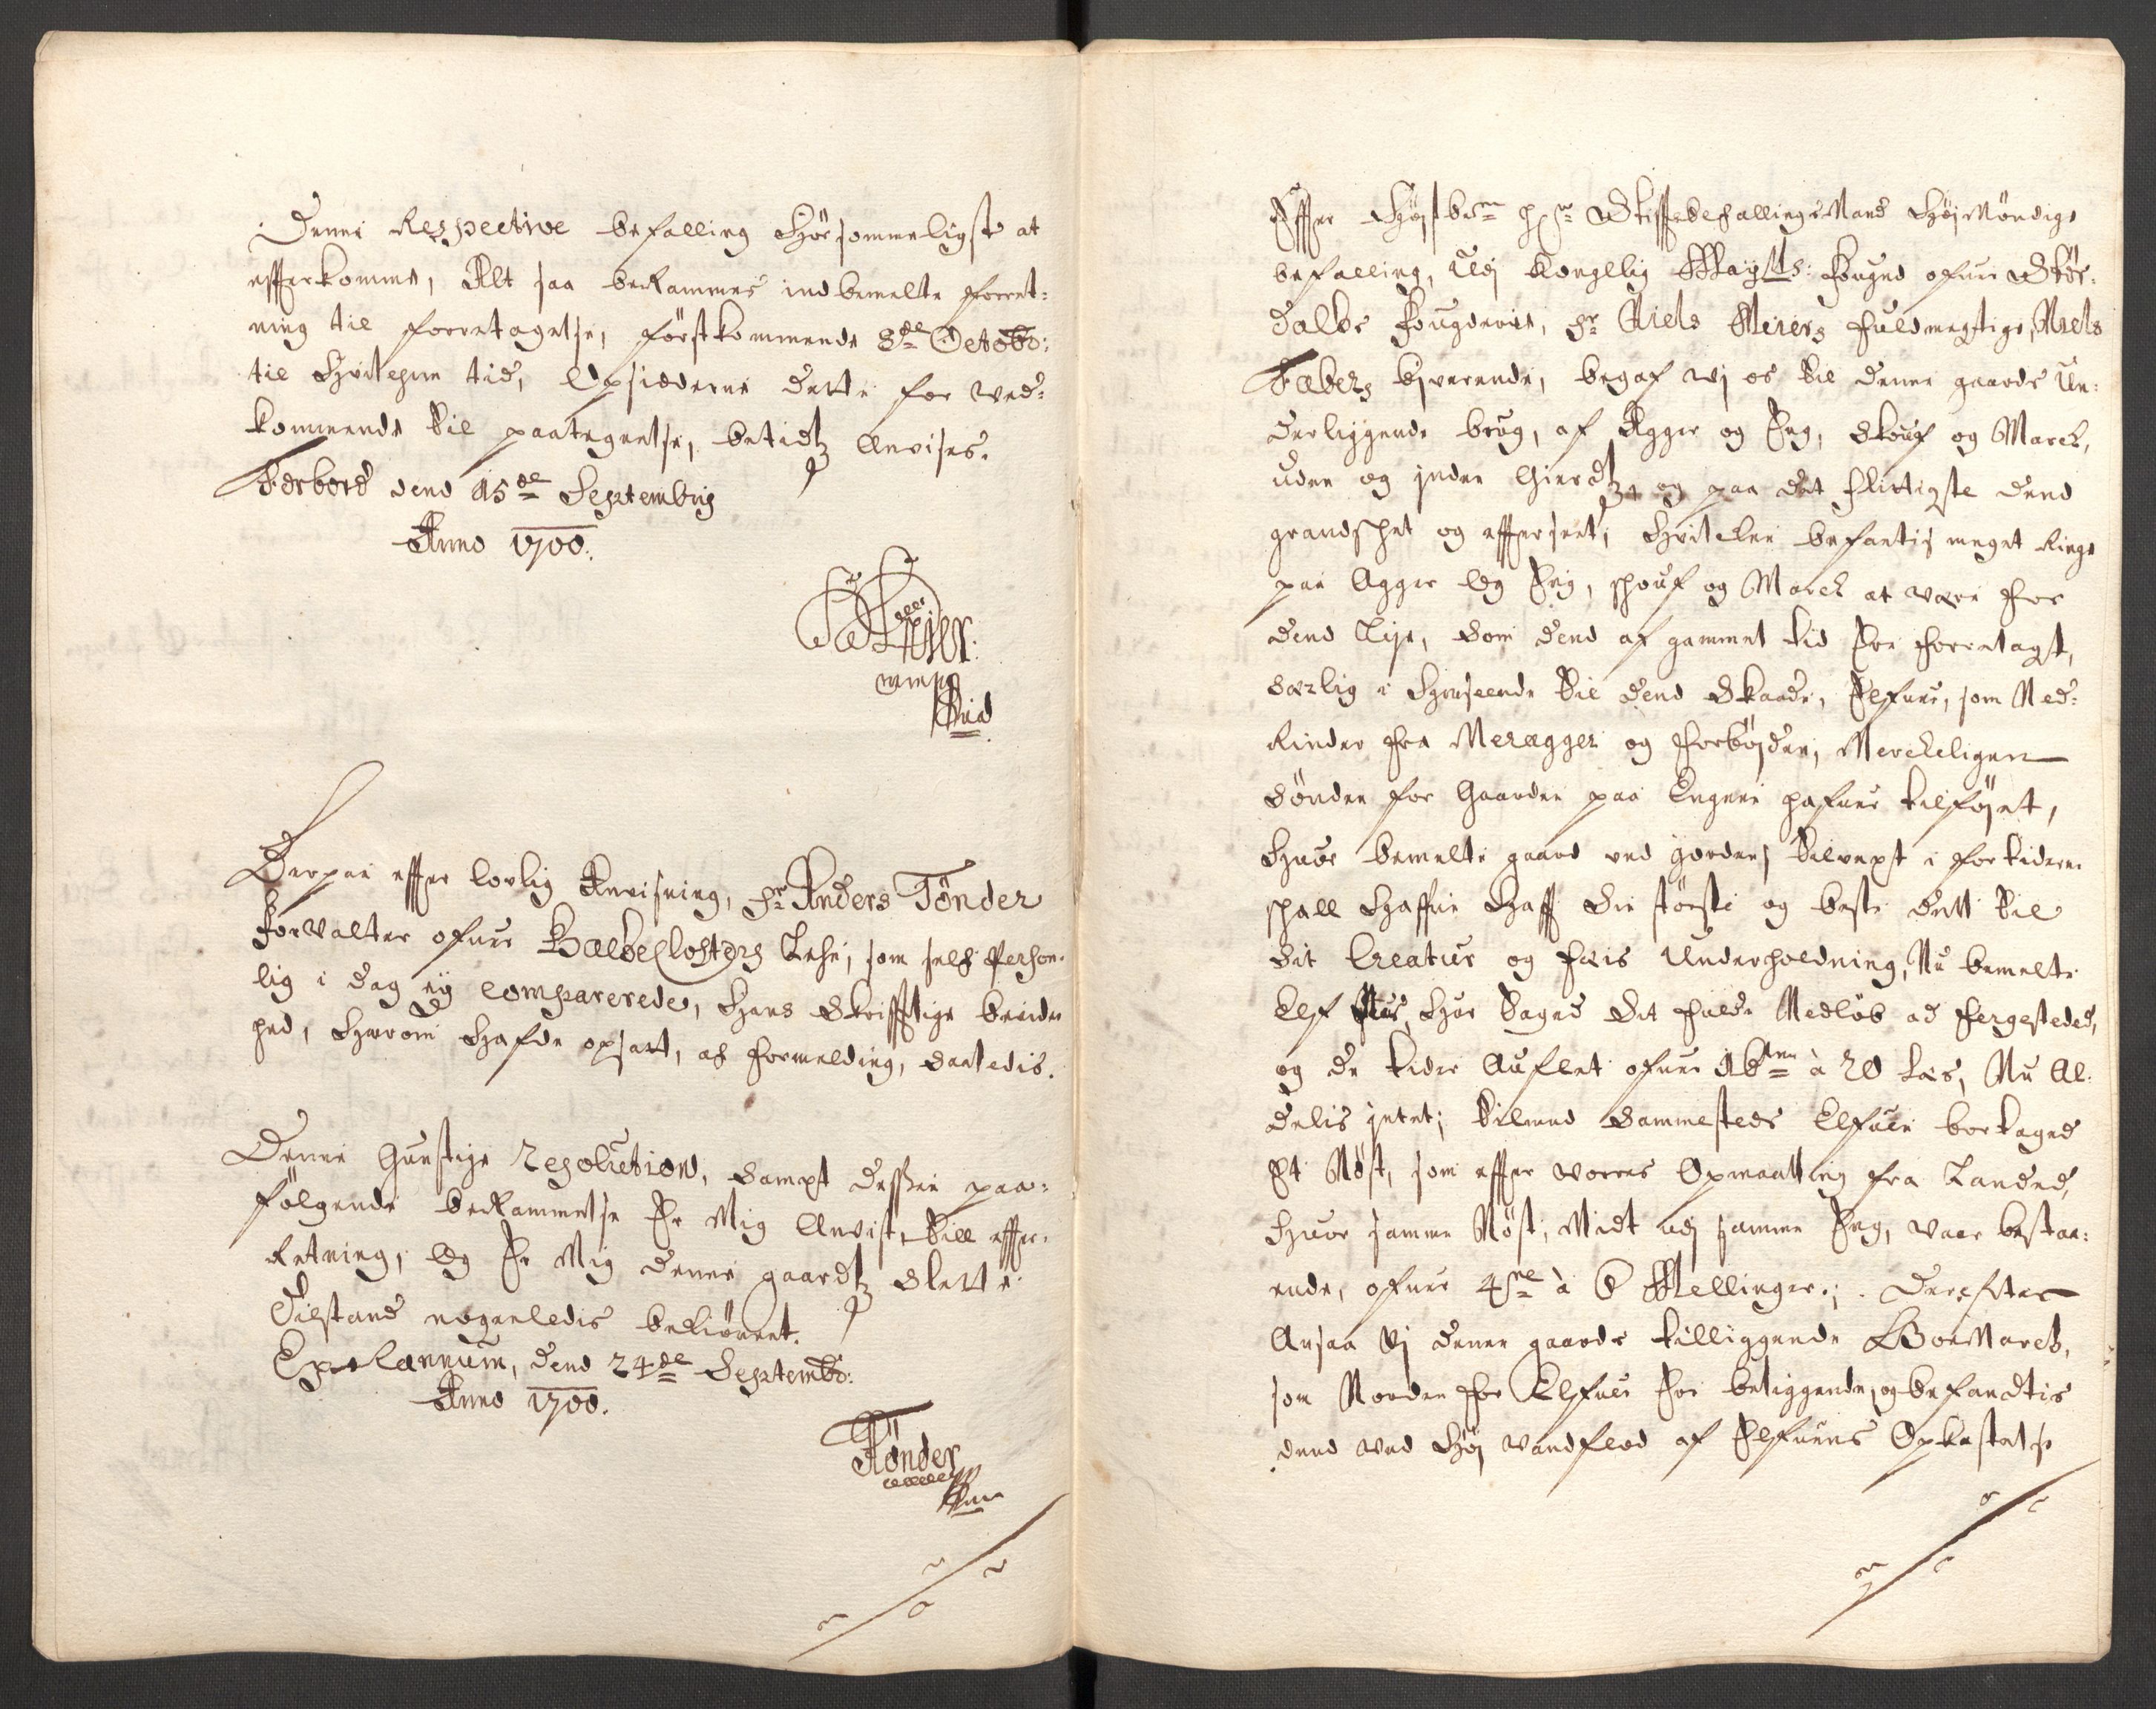 Denne Respective befalling Hørsommeligst at
efterkomme, Alt saa berammes indbemelte forret:
ning til foretagelse, førstkommende 8de Octobr:
til Hvilchen tid, Opsidderne dette for ved:
kommende til paategnelse, betids Anvises.
Forbord dend 15de Septembris
Anno 1700.
mpp
Derpaa effter lovlig Anvisning, Sr Anders Tönder
forvalter ofuer Bakke Closters Lehn, som self Person:
lig i dag ey comparerede, Hans skrifftlige
hed, Hvorom Hafde opsatt, af formelding, saaledis.
Denne Gunstige Resolution, sampt dessen paa:
følgende berammelse Er Mig Anvist, till effter:
Retning, Og Er Mig denne gaards slette
Tilstand nogenledis
dend 24de Septembr:
Anno 1700.
Tönder
Effter Høystbemte Hr Stiftsbefallings Mand Høj Møndige
befalling, Udj Kongellig Mayts: fouged ofuer Stør:
dalss fougderie, Sr Niels Meiers fuldmegtige, Niels
Fabers biverende, begaf vj os til denne gaards Un:
derliggende brug, af Agger og Eng, Skouf og Marck,
uden og inden Gierds, og paa det flittigste dend
grandsket og effterseet, Hvilchen befantis meget Ringe
paa Agger Og Eng, schouf og Marck at være for
dend Leje, som dend af gammel tid Er foretagt,
særlig i Henseende til dend Skaade, Elfuen, som Ned:
Rinder fra Meragger og forbøjder, Merckeligen
sønden for Gaarden paa Engene hafuer tilføjet,
Huor bemelte gaard ved i fortiden
schall Haffue Haft Sin største og beste Deel til
Sit Creatur og Fæis Underholdning, Nu bemelte
Elf Huer Aar taged Sit fulde Nedløb ad fergestedet,
og de tider Auflet ofuer 16ten à 20 Læs, Nu Al:
delis intet; tilmed sammesteds Elfuen borttaged
Et Nøst, som effter vorres Opmaalling fra Landed,
Huor samme Nøst, Midt udj samme Eng, vaar bestaa:
ende, ofuer 4re à 6 Mellinger; Dereffter
Ansaa Vj denne gaards tilliggende BoeMarck,
som Norden for Elfuen Er beliggende, og befandtis
dend ved Høj vandflod af Elfuens Opkastelse